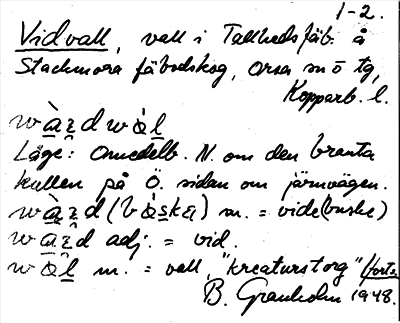 1-2.
Vidvall, vall i Tallhedsfäb. å
Stackmora fäbodskog, Orsa sn ö tg,
Kopparb. l.
wàẓdwòḷ
Läge: Omedelb. N. om den branta
kullen på Ö. sidan om järnvägen.
wàẓd (bòskɐ) m. = vide(buske)
wàẓd adj. = vid.
wòḷ m. = vall, "kreaturstorg"
B. Granholm 1948.